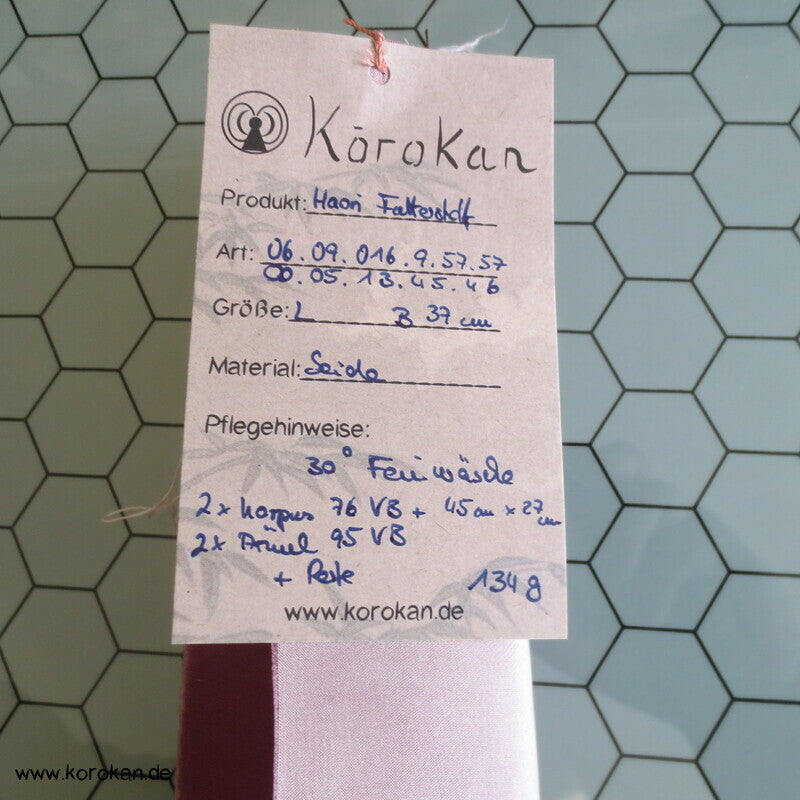 Kōrokan
Produkt: Haori Futterstoff
Art: 06.09.016.9.57.57
00.05.13.45.46
Größe: L B 37 cm
Material: Seide
Pflegehinweise:
30° Feinwäsche
2x Korpus 76 VB + 45 cm x 27 cm
2x Ärmel 95 VB
+ Reste 134 g
www.korokan.de
www.korokan.de